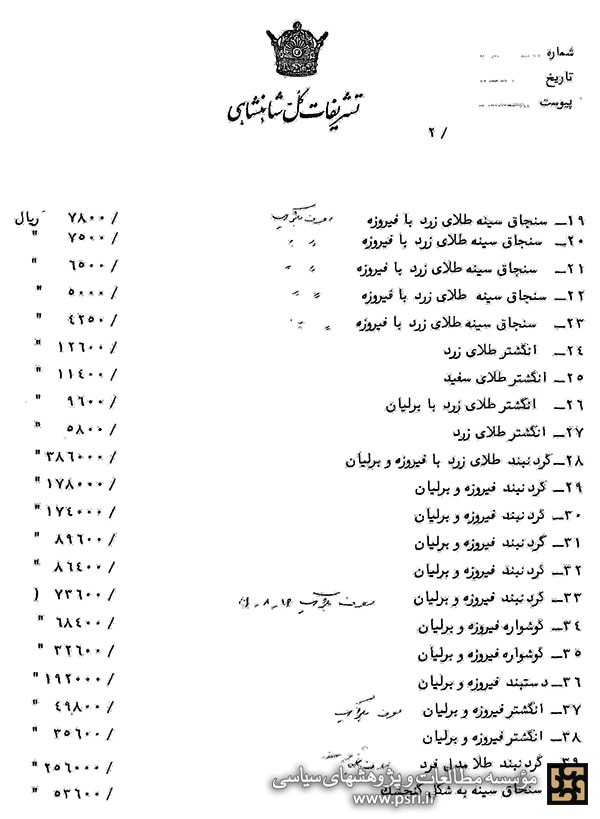 شماره
تاریخ
پیوست
تشریفات کل شاهنشاهی
۲ /
۱۹ــ سنجاق سینه طلای زرد با فیروزه /۷۸۰۰ ریال
۲۰ــ سنجاق سینه طلای زرد با فیروزه /۷۵۰۰ "
۲۱ــ سنجاق سینه طلای زرد با فیروزه /۶۵۰۰ "
۲۲ــ سنجاق سینه طلای زرد با فیروزه /۵۰۰۰ "
۲۳ــ سنجاق سینه طلای زرد با فیروزه /۴۲۵۰ "
۲۴ــ انگشتر طلای زرد /۱۲۶۰۰ "
۲۵ــ انگشتر طلای سفید /۱۱۴۰۰ "
۲۶ــ انگشتر طلای زرد با برلیان /۹۶۰۰ "
۲۷ــ انگشتر طلای زرد /۵۸۰۰ "
۲۸ــ گردنبند طلای زرد با فیروزه و برلیان /۳۸۶۰۰۰ "
۲۹ــ گردنبند فیروزه و برلیان /۱۷۸۰۰۰ "
۳۰ــ گردنبند فیروزه و برلیان /۱۷۴۰۰۰ "
۳۱ــ گردنبند فیروزه و برلیان /۸۹۶۰۰ "
۳۲ــ گردنبند فیروزه و برلیان /۸۶۴۰۰ "
۳۳ــ گردنبند فیروزه و برلیان /۷۳۶۰۰ (
۳۴ــ گوشواره فیروزه و برلیان /۶۸۴۰۰ "
۳۵ــ گوشواره فیروزه و برلیان /۳۲۶۰۰ "
۳۶ــ دستبند فیروزه و برلیان /۱۹۲۰۰۰ "
۳۷ــ انگشتر فیروزه و برلیان /۴۹۸۰۰ "
۳۸ــ انگشتر فیروزه و برلیان /۳۵۶۰۰ "
۳۹ــ گردنبند طلا مدل فرد /۲۵۶۰۰۰ "
سنجاق سینه به شکل گنجشک /۵۳۶۰۰ "
مؤسسه مطالعات و پژوهشهای سیاسی
www.psri.ir